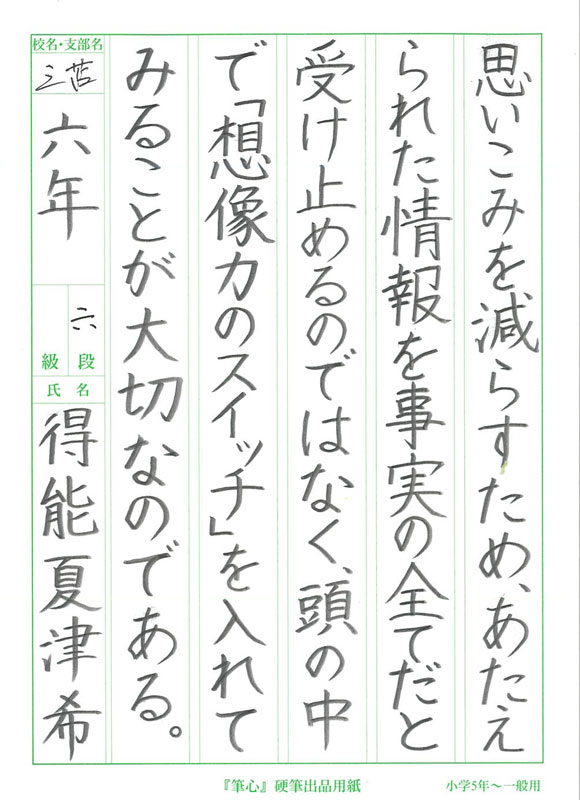 思いこみを減らすため、あたえ
られた情報を事実の全てだと
受け止めるのではなく、頭の中
で「想像力のスイッチ」を入れて
みることが大切なのである。
校名・支部名
三苫
六年
六
級 段
氏 名
得能夏津希
『筆心』硬筆出品用紙
小学5年〜一般用